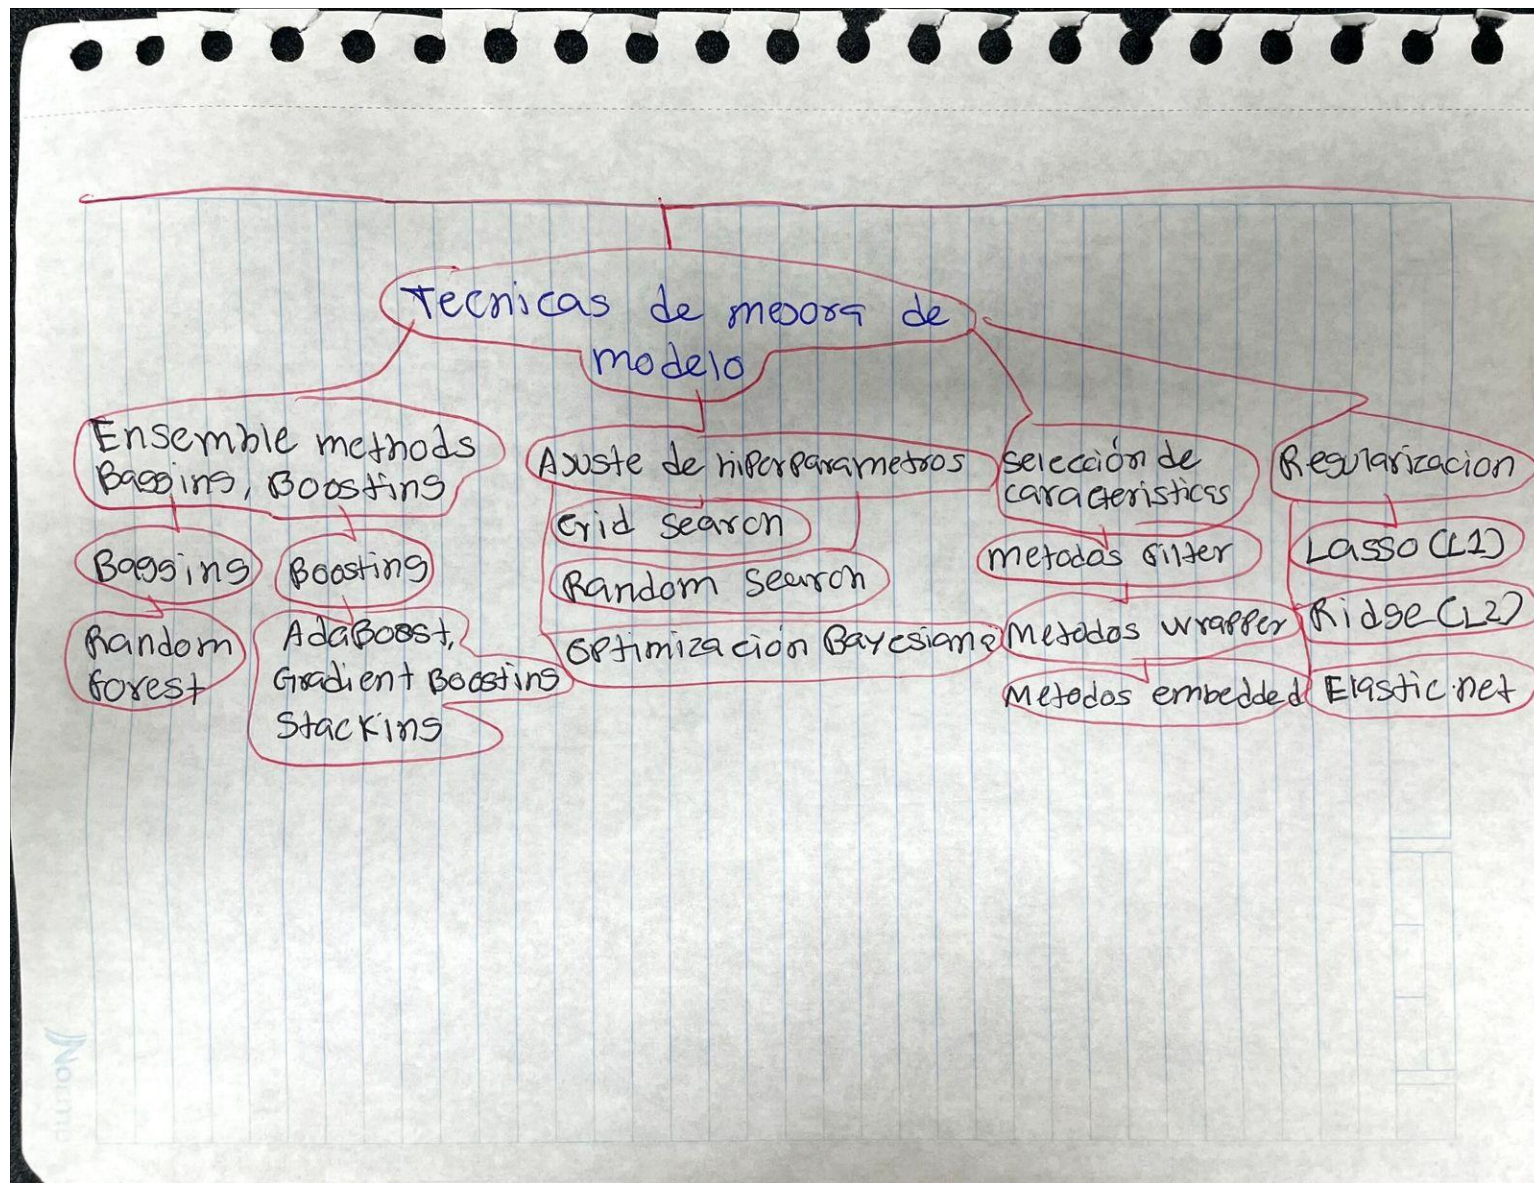 Tecnicas de mejora de
modelo
Ensemble methods
Bagging, Boosting
Bagging
Random
Forest
Boosting
AdaBoost,
Gradient Boosting
Stacking
Ajuste de hiperparametros
Grid search
Random Search
Optimización Bayesiana
selección de
caracteristicas
metodos filter
Metodos wrapper
Metodos embedded
Regularizacion
Lasso (L1)
Ridge (L2)
Elastic net